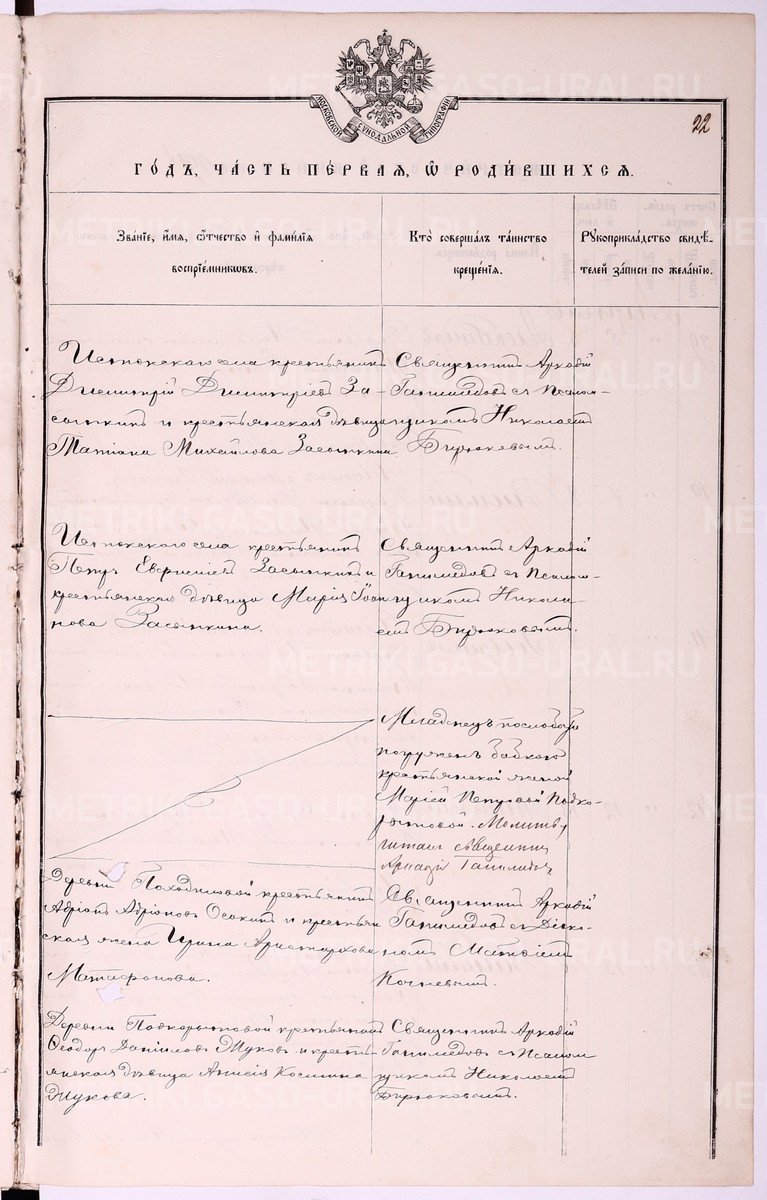 МОСКОВСКОЙ СѴНОДАЛЬНОЙ ТИПОГРАФІИ
22
ГО́ДЪ, ЧА́СТЬ ПЕ́РВАЯ, Ѽ РОДИ́ВШИХСЯ.
Зва́нїе, и҆́мя, ѻ҆́тчество и҆ фами́лїя
воспрїе́мниковъ.
Кто̀ соверша́лъ та́инство
креще́нїя.
Рꙋкоприкла́дство свидѣ́-
телей за́писи по жела́нїю.
Истокскаго села крестьянинъ
Димитрій Димитріевъ За-
сыпкинъ и крестьянская дѣвица
Татіана Михайлова Засыпкина
Священникъ Аркадій
Гапимедовъ съ Псалом-
щикомъ Николаемъ
Бирюковымъ.
Истокскаго села крестьянинъ
Петръ Засыпкинъ и
крестьянская дѣвица Марія Іоан-
нова Засыпкина.
Священникъ Аркадій
Гапимедовъ съ Псалом-
щикомъ Никола-
емъ Бирюковымъ.
Младенецъ по слабости
погруженъ бабкою
крестьянской женой
Маріей Петровой Подко-
рытовой. Молитву
читалъ священникъ
Аркадій
Деревни Походиловой крестьянинъ
Адріанъ Адріановъ Осокинъ и крестьян-
ская жена Ирина Аристархова
Матафонова.
Священникъ Аркадій
Гапимедовъ съ Діако-
номъ Матвѣемъ
Кочневымъ.
Деревни Подкорытовой крестьянинъ
Ѳеодоръ Даніиловъ Жуковъ и кресть-
янская дѣвица Анисія Космина
Жукова.
Священникъ Аркадій
Гапимедовъ съ Псалом-
щикомъ Николаемъ
Бирюковымъ.
METRIKI.GASO-URAL.RU